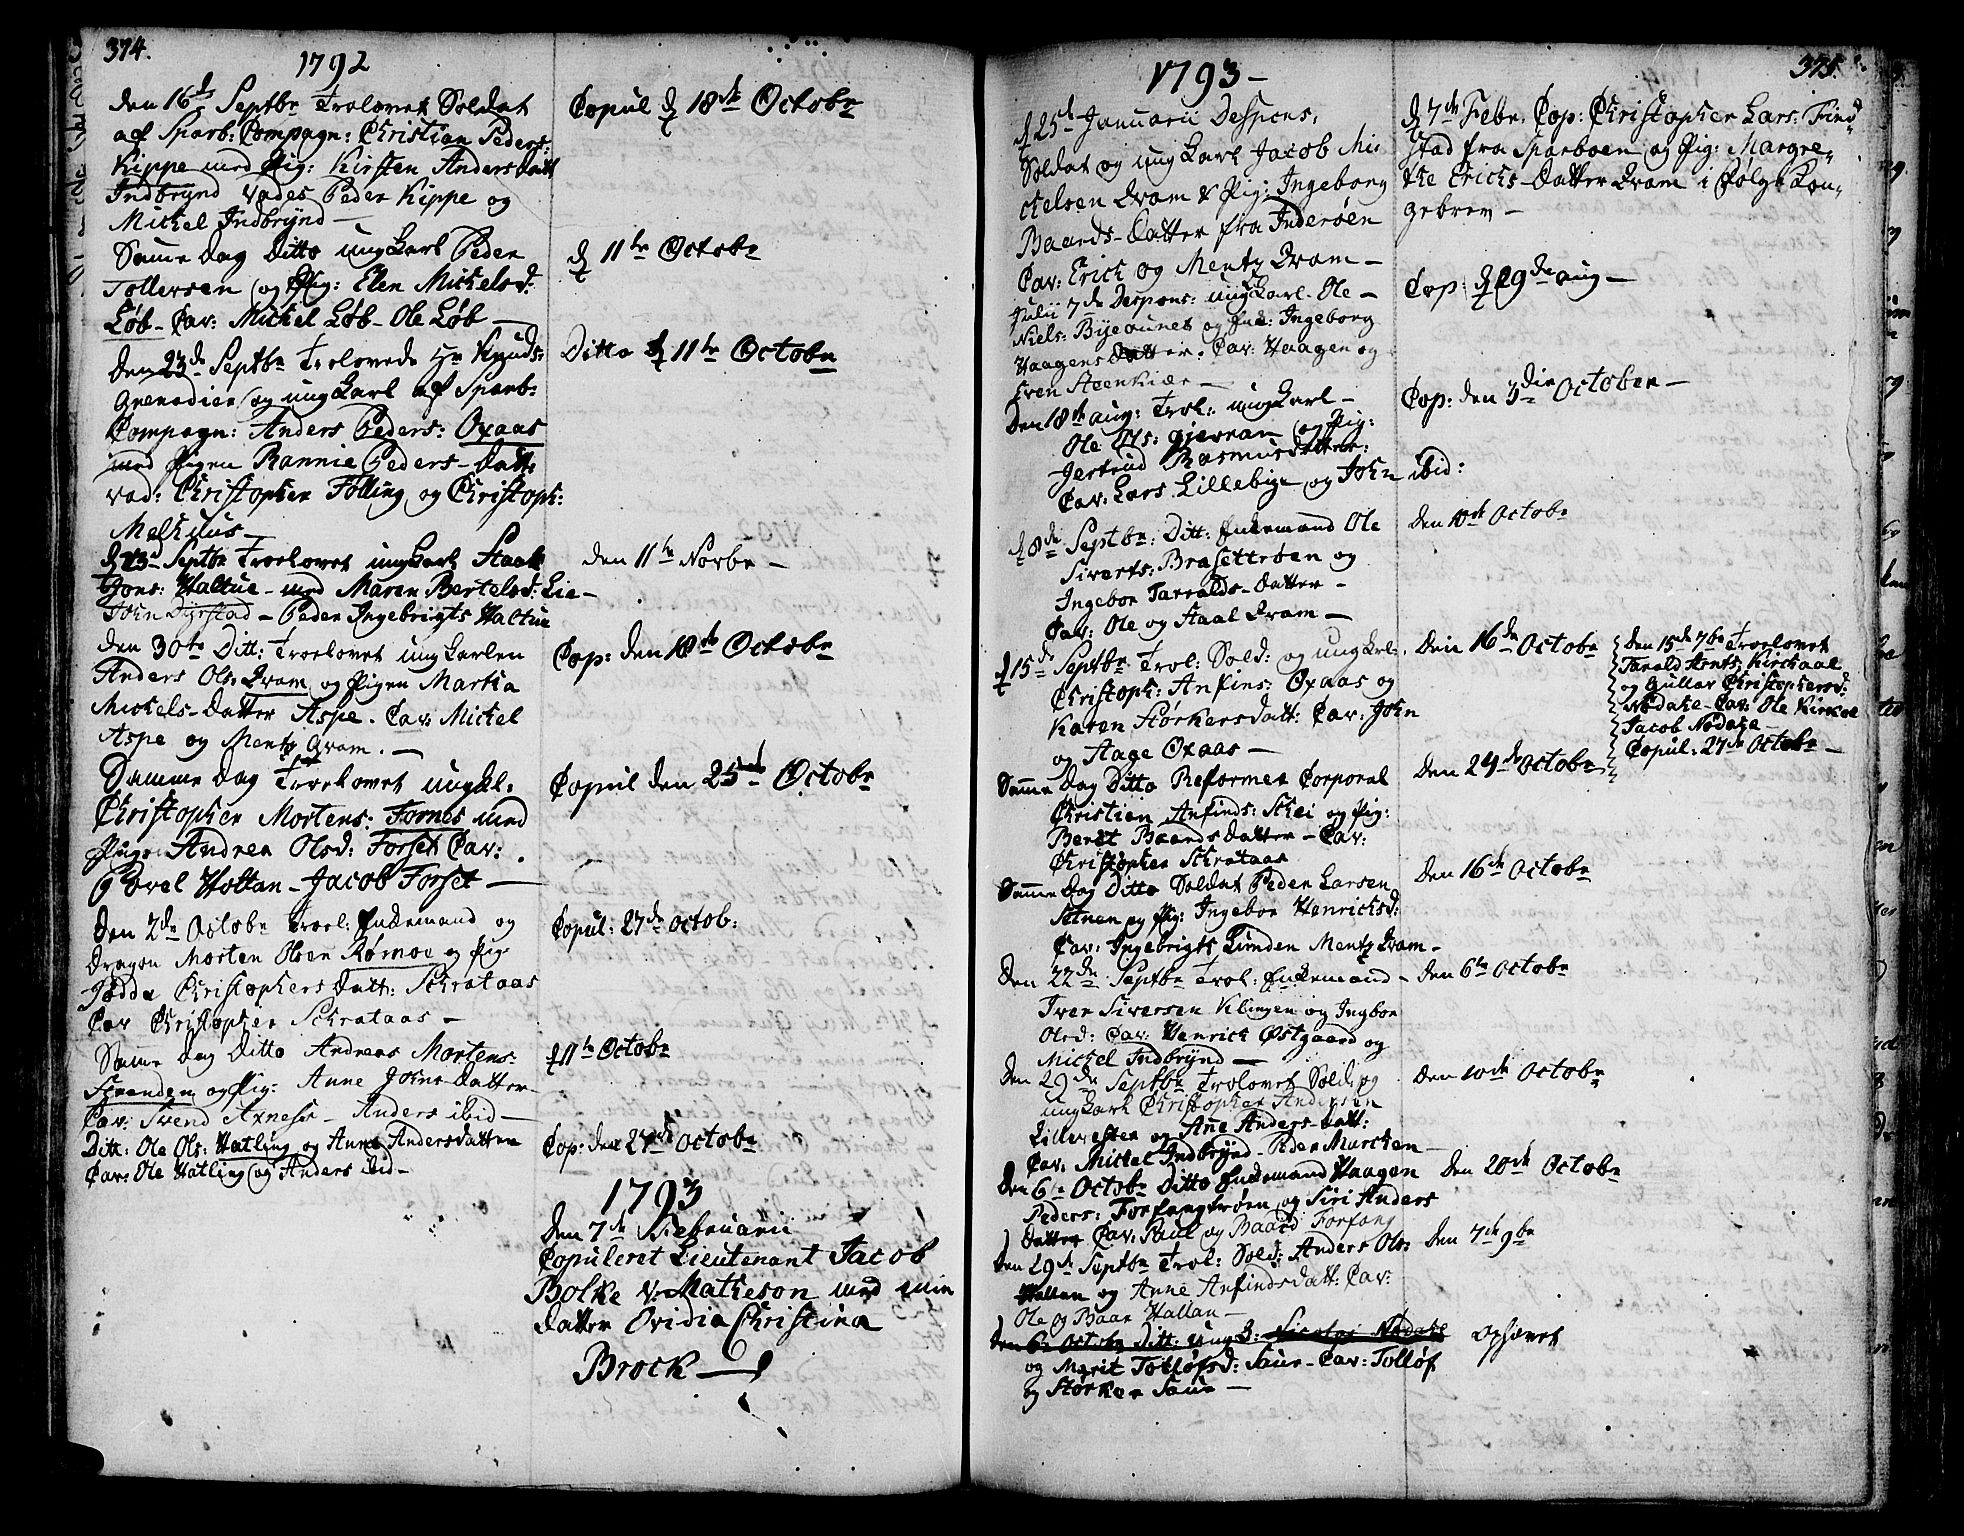 374.
1792
den 16de Septbr Trolovet Soldat
af Sparb: Compagn: Christian Peders:
Kippe med Pig: Kirsten Anders datt
Indbrÿnd Vades Peder Kippe og
Mickel Indbrÿnd —
Samme dag Ditto ungkarl Peder
Tollersen og Pig: Elen Mickelsd:
Løb — Cav: Mickel Løb — Ole Løb —
den 23de Septbr Trolovede Hr Knuds:
Grenadier og ungkarl af Sparb:
Compagn: Anders Peders: Oxaas
med Pigen Rannie Peders-datt:
vad: Christopher Følling og Christoph:
Melhuus —
d 23de Septbr Troelovet ungkarl Staal
Jons: Haltue — med Maren Bertelsd: Lie —
John Dyrstad — Peder Ingebrigts Haltue
den 30te Ditt: Troelovet ungkarlen
Anders Ols: Qvam og Pigen Martha
Mickels-datter Aspe. Cav: Mickel
Aspe og Mentz Qvam. —
Samme dag Troelovet ungkl.
Christopher Mortens: Fornes med
Pige Andrea Olsd: Forset Cav:
Povel Holtan — Jacob Forset —
den 2de Octobr Troel: Enkemand og
dragon Morten Olsen Rømoe og Pig
Jødda Christophers datt: Skrataas
Cav Christopher Skrataas —
Samme dag Ditto Andreas Mortens:
Førenden og Pig: Anne Johns datter
Cav: Svend Axnesse — Anders ibid —
Ditt: Ole Ols: Hatling og Anne Andersdatter
Cav: Ole Hatling og Anders ibid —
Copul d 18de Octobr
d 11te Octobr
Ditto d 11te Octobr
den 11te Novbr —
Cop: den 18de Octobr
Copul den 25de Octobr
Copul: 27de Octob:
d 11te Octobr
Cop: den 27de Octobr
1793
den 7de Februarii
Copuleret Lieutenant Jacob
Bolke v: Matheson med min
datter Ovidia Christina
Brock —
375.
1793 —
d 25de Januarii Despons:
Soldat og ungkarl Jacob Mi-
ckelsen Qvam & Pig: Ingeborg
Baards-datter fra Inderøen
Cav: Erich og Mentz Qvam —
Julii 7de Despons: ungkarl Ole —
Niels: Bÿeaunet og Enk: Ingeborg
Haagens datter. Cav: Haagen og
Sven Steenkiær —
den 18de aug: Trol: ungkarl —
Ole Ols: Gjevran og Pig:
Jertrud Rasmusdatter:
Cav: Lars Lillebÿe og John ibid:
d 8de Septbr: Ditt: Enkemand Ole
Siverts: Brasettrøen og
Ingebor Tarralds-datter —
Cav: Ole og Staal Qvam —
d 15de Septbr Trol: Sold: og ungkrl.
Christoph: Anfins: Oxaas og
Karen Størkersdatt: Cav: John
og Aage Oxaas —
Samme dag Ditto Reformer Corporal
Christien Anfinds: Schei og Pig:
Beret Baards datter — Cav:
Christopher Skrataas
Samme dag Ditto Soldat Peder Larsen
Setnen og Pig: Ingebor Henricksd:
Cav: Ingebrigts Lunden Mentz Qvam —
den 22de Septbr Trol: Enkemand —
Iver Siversen Klingen og Ingbor
Olsd: Cav: Henrick Østgaard og
Mickel Indbrÿnd —
den 29de Septbr Trolovet Sold: og
ungkarl Christopher Andersen
Lillevesten og Ane Anders datt:
Cav: Mickel Indbrÿnd — Peder Marchen —
den 6te Octobr Ditto Enkemand Haagen
Peders: Forfangtrøen og Siri Anders
datter Cav: Paul og Baard Forfang
den 29de Septbr Trol: Sold: Anders Ols:
Hallan og Anne Anfindsdatt: Cav:
Ole og Baar Hallan —
den 6te Octobr Ditt: ungk: Nicolai Nødahl
og Marit Tolløfsd: Saur — Cav: Tolløf
og Størker Saur —
d 7de Febr. Cop: Christopher Lars: Find-
stad fra Sparboen og Pig: Margre-
the Erichs-datter Qvam i følge Kon-
gebrev —
Cop: d 29de aug —
Cop: den 3die October —
den 10de Octobr
den 16de Octobr
den 24de Octobr
den 16de Octobr
den 6te Octobr
den 10de Octobr
den 20de Octobr
den 7de 9br
Ophævet
den 15de 7br Troelovet
Tarald Arnts: Kirkaal
og Gullav Christophersd:
Nødahl — Cav: Ole Kirkol
Jacob Nødahl —
Copul. 27de Octobr —